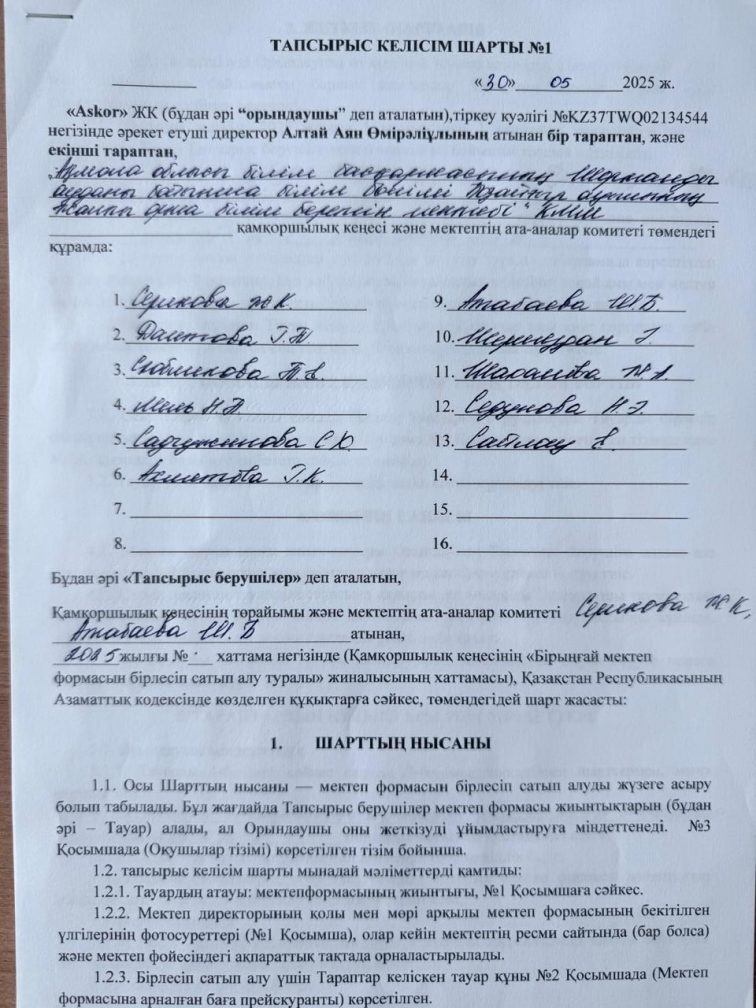 ТАПСЫРЫС КЕЛІСІМ ШАРТЫ №1
«30» 05 2025 ж.
«Askor» ЖК (бұдан әрі “орындаушы” деп аталатын),тіркеу куәлігі №KZ37TWQ02134544
негізінде әрекет етуші директор Алтай Аян Өмірәліұлының атынан бір тараптан, және
екінші тараптан,
"Ақмола облысы білім басқармасының Шортанды
ауданы бойынша білім бөлімі ауылының
жалпы орта білім беретін мектебі" КММ
қамқоршылық кеңесі және мектептің ата-аналар комитеті төмендегі
құрамда:
1. Серикова Ж К.
2. Даитова Г.Т
3.
4. Мель Н.П.
5. С.Ю.
6. Ахметова Г.К.
7.
8.
9. Атабаева Ш.Б.
10. Г.
11. Шаханова Ж.А.
12. Седунова Н.Э.
13. Сайлау
14.
15.
16.
Бұдан әрі «Тапсырыс берушілер» деп аталатын,
Қамқоршылық кеңесінің төрайымы және мектептің ата-аналар комитеті Серикова Ж К,
Атабаева Ш.Б атынан,
2025 жылғы № хаттама негізінде (Қамқоршылық кеңесінің «Бірыңғай мектеп
формасын бірлесіп сатып алу туралы» жиналысының хаттамасы), Қазақстан Республикасының
Азаматтық кодексінде көзделген құқықтарға сәйкес, төмендегідей шарт жасасты:
1. ШАРТТЫҢ НЫСАНЫ
1.1. Осы Шарттың нысаны — мектеп формасын бірлесіп сатып алуды жүзеге асыру
болып табылады. Бұл жағдайда Тапсырыс берушілер мектеп формасы жиынтықтарын (бұдан
әрі – Тауар) алады, ал Орындаушы оны жеткізуді ұйымдастыруға міндеттенеді. №3
Қосымшада (Оқушылар тізімі) көрсетілген тізім бойынша.
1.2. тапсырыс келісім шарты мынадай мәліметтерді қамтиды:
1.2.1. Тауардың атауы: мектепформасының жиынтығы, №1 Қосымшаға сәйкес.
1.2.2. Мектеп директорының қолы мен мөрі арқылы мектеп формасының бекітілген
үлгілерінің фотосуреттері (№1 Қосымша), олар кейін мектептің ресми сайтында (бар болса)
және мектеп фойесіндегі ақпараттық тақтада орналастырылады.
1.2.3. Бірлесіп сатып алу үшін Тараптар келіскен тауар құны №2 Қосымшада (Мектеп
формасына арналған баға прейскуранты) көрсетілген.